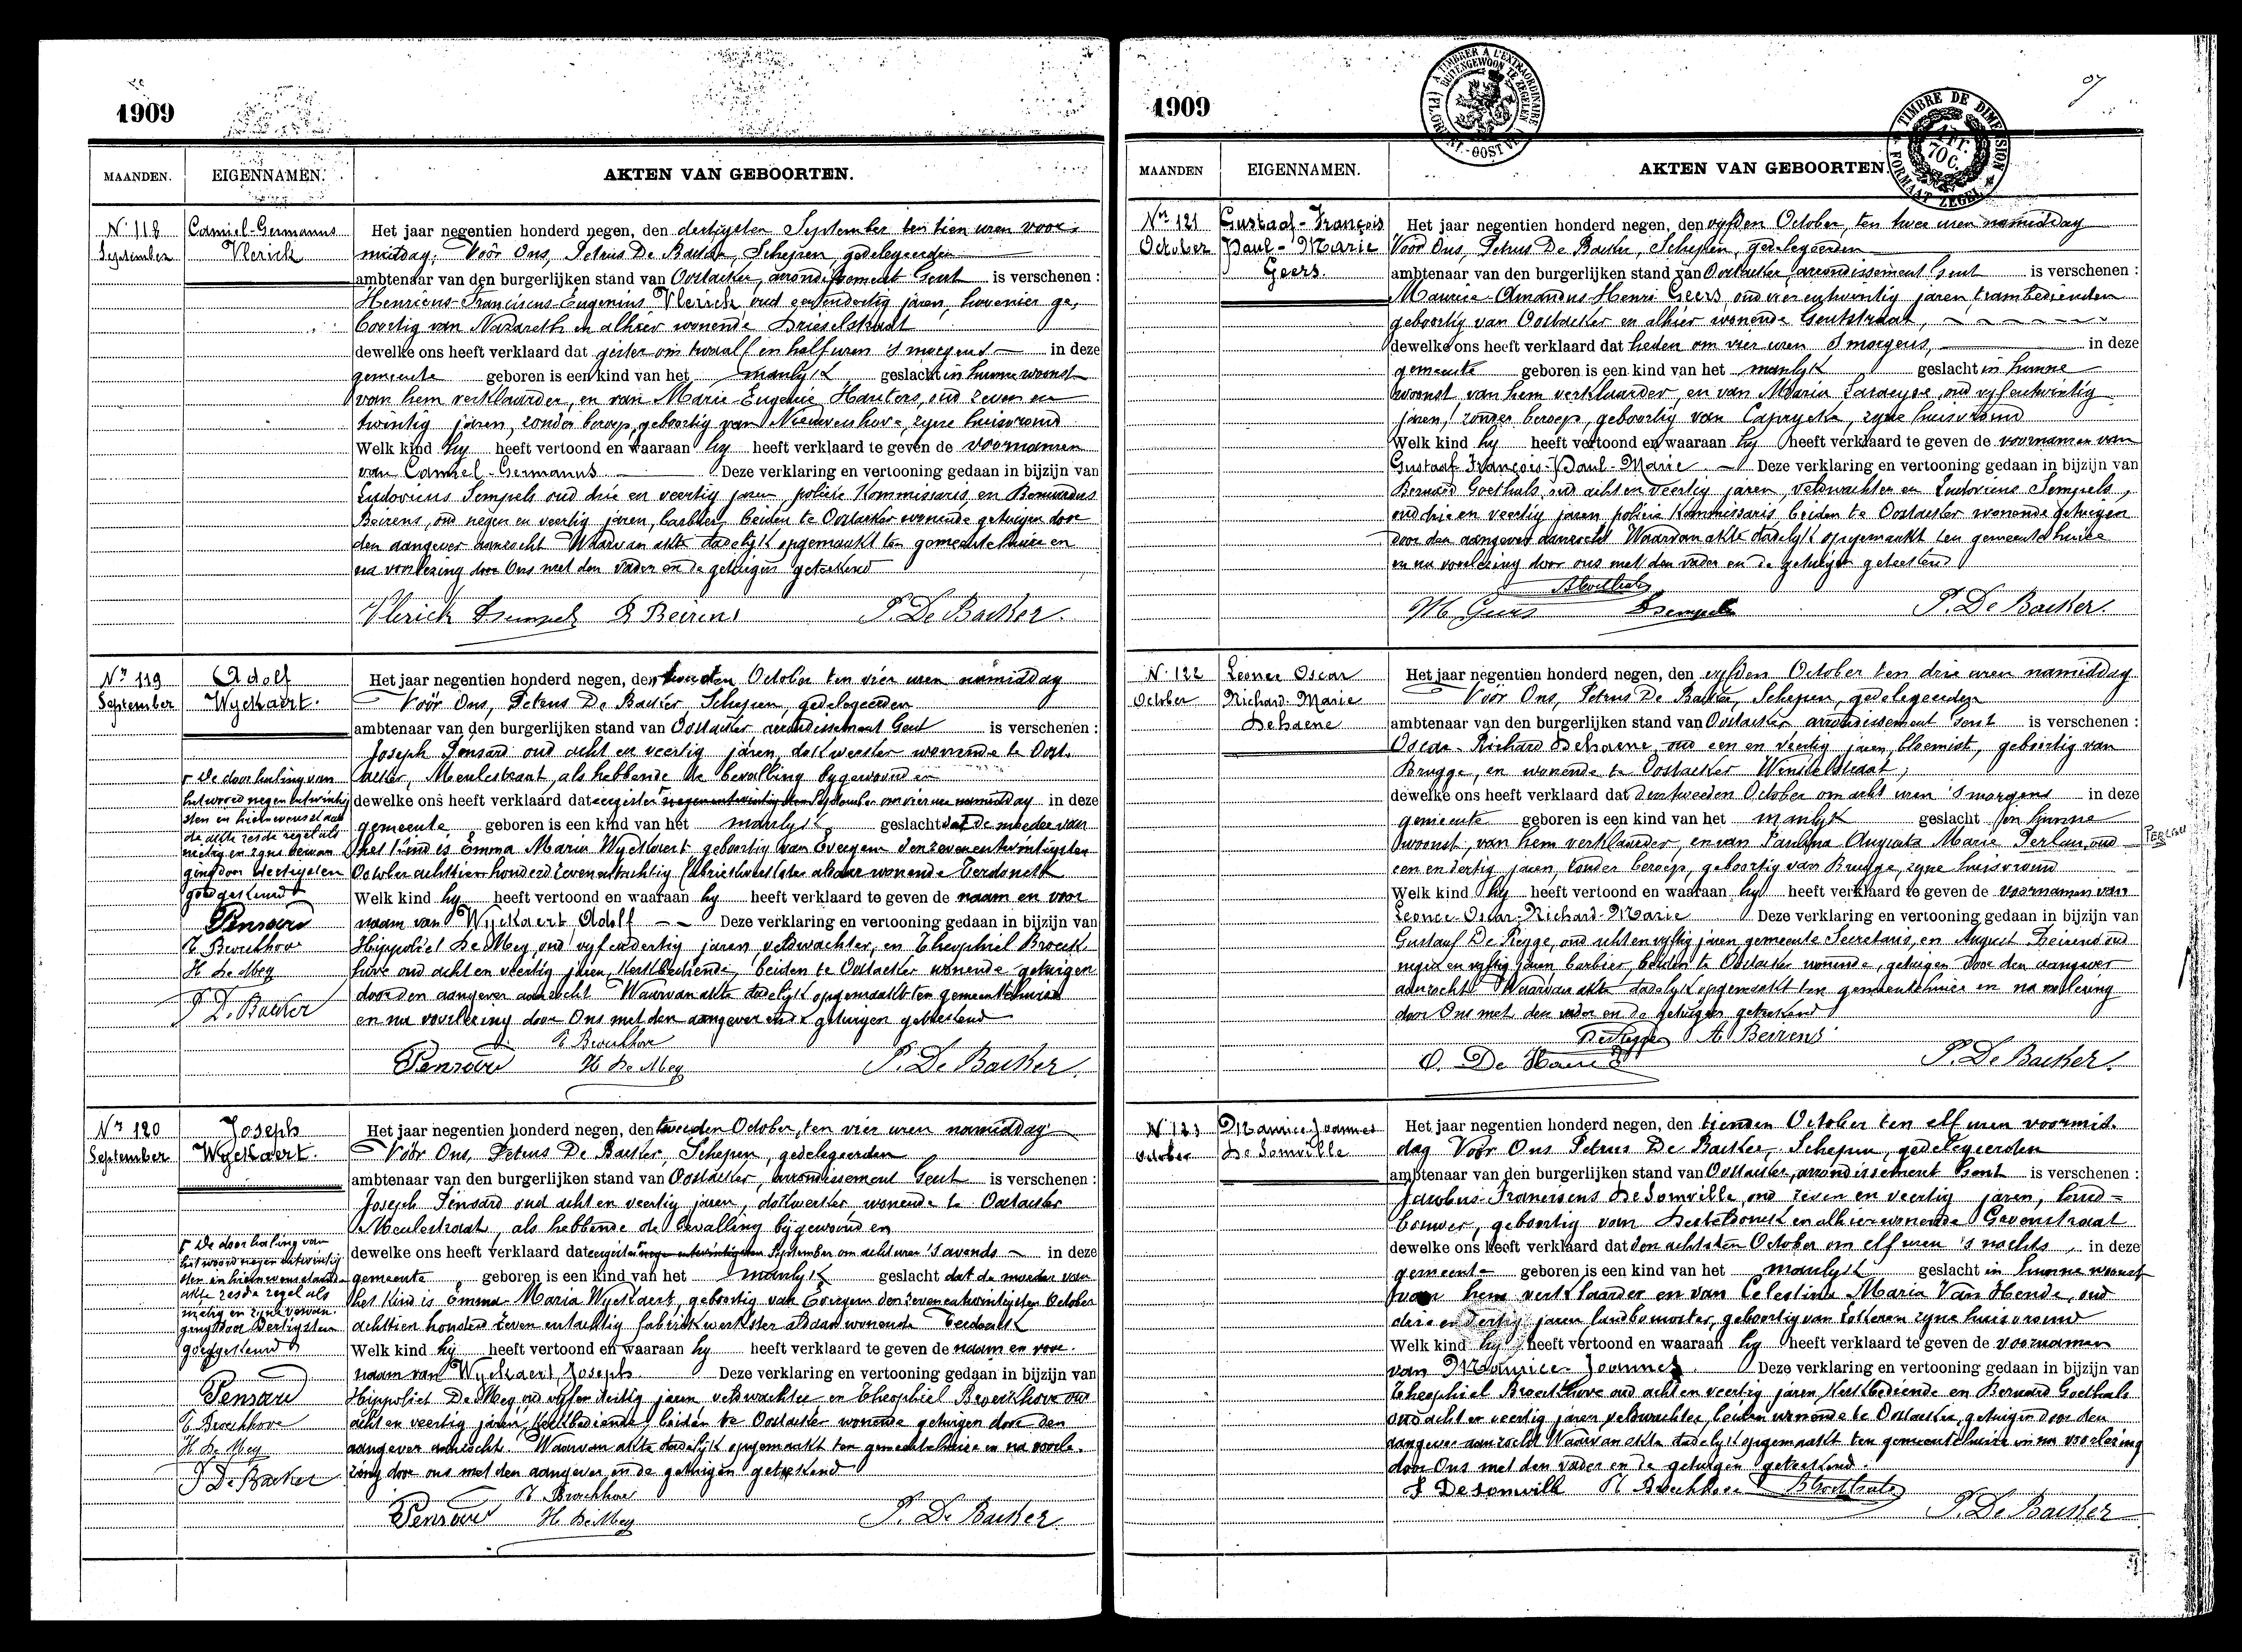 1909
MAANDEN. EIGENNAMEN. AKTEN VAN GEBOORTEN.
Nr 118 September
Camiel-Germanus Vlerick
Het jaar negentien honderd negen, den dertigsten September ten tien uren voor-
middag, Vóór Ons, Petrus De Backer, Schepen, gedelegeerden
ambtenaar van den burgerlijken stand van Oostacker, arrondissement Gent is verschenen :
Henricus-Franciscus-Eugenius Vlerick, oud een en dertig jaren, hovenier ge-
boortig van Nazareth en alhier wonende Drieselstraat
dewelke ons heeft verklaard dat gister om twaalf en half uren 's morgens in deze
gemeente geboren is een kind van het manlyk geslacht in hunne woonst
van hem verklaarder, en van Marie Eugenie Hauters, oud zeven en
twintig jaren, zonder beroep, geboortig van Nieuwenhove, zyne huisvrouw
Welk kind hy heeft vertoond en waaraan hy heeft verklaard te geven de voornamen
van Camiel-Germanus Deze verklaring en vertooning gedaan in bijzijn van
Ludovicus Sempels oud drie en veertig jaren policie Kommissaris en Bernardus
Beirens, oud negen en veertig jaren, barbier, beiden te Oostacker wonende getuigen door
den aangever aanzocht Waarvan akte dadelyk opgemaakt ten gemeentehuize en
na voorlezing door Ons met den vader en de getuigen geteekend
Vlerick LSempels B Beirens P. De Backer.
Nr 119 September
Adolf Wyckaert.
Het jaar negentien honderd negen, den tweeden October ten vier uren namiddag
Vóór Ons, Petrus De Backer, Schepen, gedelegeerden
ambtenaar van den burgerlijken stand van Oostacker arrondissement Gent is verschenen :
Joseph Pensard oud acht en veertig jaren, doktwerker wonende te Oost-
acker, Meulestraat, als hebbende de bevalling bygewoond en
dewelke ons heeft verklaard dat eergister negenentwintigsten September om vier uren namiddag in deze
gemeente geboren is een kind van het manlyk geslacht dat de moeder van
het kind is Emma Maria Wyckaert geboortig van Evergem den zevenentwintigsten
October achttien honderd zeven entachtig fabriekwerkster aldaar wonende Terdonck
Welk kind hy heeft vertoond en waaraan hy heeft verklaard te geven de naam en voor
naam van Wyckaert Adolf Deze verklaring en vertooning gedaan in bijzijn van
Hippoliet De Mey oud vyf en dertig jaren veldwachter, en Theophiel Broeck
hove oud acht en veertig jaren, Kerkbediende, beiden te Oostacker wonende getuigen
door den aangever aanzocht Waarvan akte dadelyk opgemaakt ten gemeentehuize
en na voorlezing door Ons met den aangever en de getuigen geteekend
T. Broeckhove
Pensard H De Mey P. De Backer.
De doorhaling van
het woord negen entwintig
sten en hierneven staande
de akte zesde regel als
nietig en zyne vervan
ging door dertigsten
goedgekeurd
Pensard
T. Broeckhove
H De Mey
P De Backer
Nr 120 September
Joseph Wyckaert.
Het jaar negentien honderd negen, den tweeden October, ten vier uren namiddag
Vóór Ons, Petrus De Backer, Schepen, gedelegeerden
ambtenaar van den burgerlijken stand van Oostacker, arrondissement Gent is verschenen :
Joseph Pensard oud acht en veertig jaren, doktwerker wonende te Oostacker
Meulestraat, als hebbende de bevalling bijgewoond en
dewelke ons heeft verklaard dat eergister negen entwintigsten September om acht uren 's avonds in deze
gemeente geboren is een kind van het manlyk geslacht dat de moeder van
het kind is Emma-Maria Wyckaert, geboortig van Evergem den zeven entwintigsten October
achttien honderd zeven entachtig fabriekwerkster aldaar wonende Terdonck
Welk kind hij heeft vertoond en waaraan hy heeft verklaard te geven de naam en voor-
naam van Wyckaert, Joseph Deze verklaring en vertooning gedaan in bijzijn van
Hippoliet De Mey oud vyf en dertig jaren, veldwachter en Theophiel Broeckhove oud
acht en veertig jaren, Kerkbediende, beiden te Oostacker wonende getuigen door den
aangever aanzocht. Waarvan akte dadelyk opgemaakt ten gemeentehuize en na voorle-
zing door ons met den aangever en de getuigen geteekend
T. Broeckhove
Pensard H. De Mey P. De Backer
De doorhaling van
het woord negen entwintig
sten in hierneven staande
akte zesde regel als
nietig en zyne vervan
ging door dertigsten
goedgekeurd
Pensard
T. Broeckhove
H. De Mey
P De Backer
1909
MAANDEN EIGENNAMEN. AKTEN VAN GEBOORTEN.
A TIMBRER A L'EXTRAORDINAIRE
BUITENGEWOON TE ZEGELEN
TIMBRE DE DIMENSION
FORMAAT ZEGEL
Nr 121 October
Gustaaf-François Paul-Marie Geers.
Het jaar negentien honderd negen, den vyfden October, ten twee uren namiddag
Vóór Ons, Petrus De Backer, Schepen, gedelegeerden
ambtenaar van den burgerlijken stand van Oostacker, arrondissement Gent is verschenen :
Maurice-Amandus-Henri Geers, oud vier entwintig jaren trambedienden
geboortig van Oostacker en alhier wonende Gentstraat,
dewelke ons heeft verklaard dat heden om vier uren 's morgens, in deze
gemeente geboren is een kind van het manlyk geslacht in hunne
woonst, van hem verklaarder, en van Maria Laraeyne, oud vyfentwintig
jaren, zonder beroep, geboortig van Caprycke, zyne huisvrouw
Welk kind hy heeft vertoond en waaraan hy heeft verklaard te geven de voornamen van
Gustaaf François-Paul-Marie Deze verklaring en vertooning gedaan in bijzijn van
Bernard Goethals oud acht en veertig jaren, veldwachter en Ludovicus Sempels,
oud drie en veertig jaren policie Kommissaris beiden te Oostacker wonende getuigen
door den aangever aanzocht Waarvan akte dadelyk opgemaakt ten gemeentehuize
en na voorlezing door ons met den vader en de getuigen geteekend
BGoethals
M Geers LSempels P. De Backer.
Nr 122 October
Leonce Oscar Richard-Marie Dehaene
Het jaar negentien honderd negen, den vyfden October ten drie uren namiddag
Vóór Ons, Petrus De Backer, Schepen, gedelegeerden
ambtenaar van den burgerlijken stand van Oostacker arrondissement Gent is verschenen :
Oscar-Richard Dehaene, oud een en veertig jaren, bloemist, geboortig van
Brugge, en wonende te Oostacker Winkelstraat;
dewelke ons heeft verklaard dat den tweeden October om acht uren 's morgens in deze
gemeente geboren is een kind van het manlyk geslacht in hunne
woonst, van hem verklaarder, en van Paulina Augusta Marie Perlau, oud
een en dertig jaren, zonder beroep, geboortig van Brugge, zyne huisvrouw
Welk kind hy heeft vertoond en waaraan hy heeft verklaard te geven de voornamen van
Leonce-Oscar-Richard-Marie Deze verklaring en vertooning gedaan in bijzijn van
Gustaaf De Regge, oud acht en vyftig jaren gemeente Secretaris, en August Beirens oud
negen en vyftig jaren barbier, beiden te Oostacker wonende, getuigen door den aangever
aanzocht Waarvan akte dadelyk opgemaakt ten gemeentehuize en na voorlezing
door Ons met den vader en de getuigen geteekend
DeRegge A Beirens
O. De Haene P. De Backer.
Nr 123 October
Maurice Joannes De Somville
Het jaar negentien honderd negen, den tienden October ten elf uren voormid-
dag Vóór Ons Petrus De Backer, Schepen, gedelegeerden
ambtenaar van den burgerlijken stand van Oostacker, arrondissement Gent is verschenen :
Jacobus-Franciscus DeSomville oud zeven en veertig jaren, land-
bouwer, geboortig van Desteldonck en alhier wonende Gavenstraat
dewelke ons heeft verklaard dat den achtsten October om elf uren 's nachts, in deze
gemeente geboren is een kind van het manlyk geslacht in hunne woonst
van hem verklaarder en van Celestina Maria Van Hende, oud
drie en dertig jaren landbouwster, geboortig van zyne huisvrouw
Welk kind hy heeft vertoond en waaraan hy heeft verklaard te geven de voornamen
van Maurice-Joannes. Deze verklaring en vertooning gedaan in bijzijn van
Theophiel Broeckhove oud acht en veertig jaren, Kerkbediende en Bernard Goethals
oud acht en veertig jaren veldwachter, beiden wonende te Oostacker, getuigen door den
aangever aanzocht Waarvan akte dadelyk opgemaakt ten gemeentehuize en na voorlezing
door Ons met den vader en de getuigen geteekend.
F Desomville T. Broeckhove BGoethals
P. De Backer